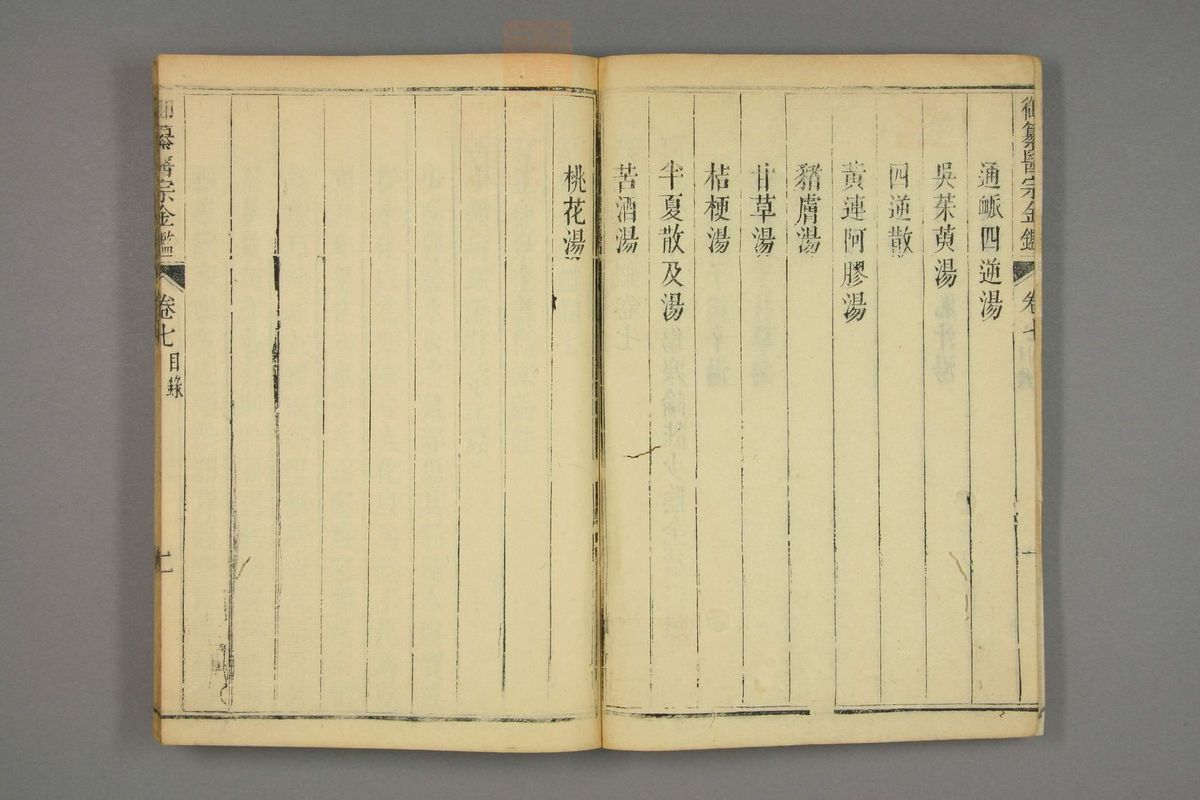 御纂醫宗金鑑
卷七目錄
一
通衇四逆湯
吳茱萸湯
四逆散
黃連阿膠湯
豬膚湯
甘草湯
桔梗湯
半夏散及湯
苦酒湯
桃花湯
御纂醫宗金鑑
卷七目錄